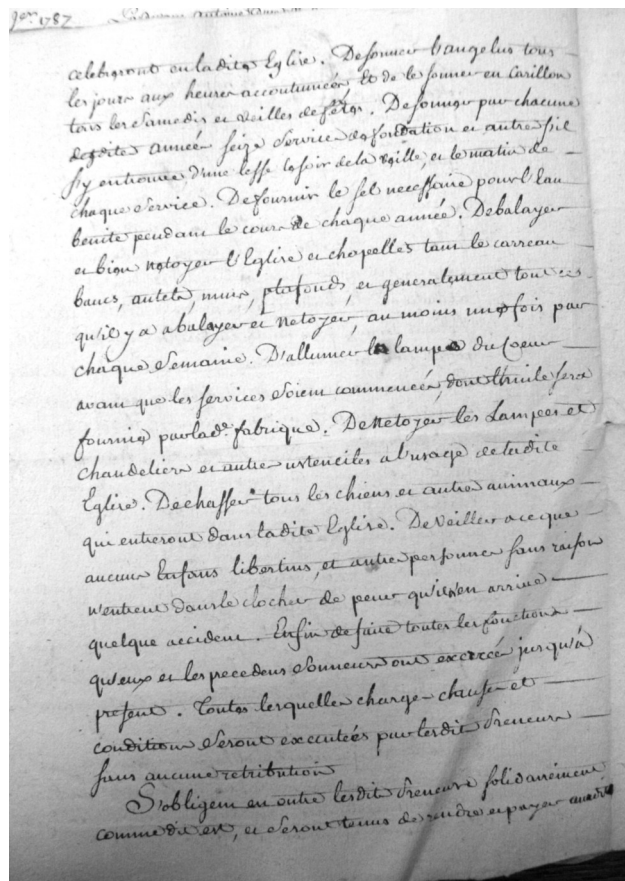 Jer. 1787
celebreront en ladite Eglise. De sonner l'angelus tous
les jours aux heures accoutumées, Et de le sonner en Carillon
tous les Samedis et veilles de fêtes. De sonner par chacune
desdites années seize Services de fondation et autres s'il
s'y en trouve, d'une lesse le soir de la veille, et le matin de
chaque Service. De fournir le sel necessaire pour l'Eau
benite pendant le cours de chaque année. De balayer
et bien netoyer l'Eglise et chapelles tant le carreau
bancs, autels, murs, plafonds, et generalement tout ce
qu'il y a a balayer et netoyer, au moins une fois par
chaque Semaine. D'allumer la lampe du Coeur
avant que les services soient commencés, dont l'huile sera
fournie par lade. fabrique. De Netoyer les Lampes et
chandeliers et autres ustenciles a l'usage de ladite
Eglise. De chasser tous les chiens et autres animaux
qui entreront dans ladite Eglise. De veiller a ce que
aucuns Enfans libertins, et autres personnes sans raison
n'entrent dans le clocher de peur qu'il n'en arrive
quelque accident. Enfin de faire toutes les fonctions
qu'eux et les precedens Sonneurs ont exercée jusqu'à
present. Toutes lesquelles charges clauses et
conditions Seront executées par lesdits Preneurs
sans aucune retribution
S'obligent en outre lesdits Preneurs solidairement
comme dit est, et Seront tenus de rendre et payer auxdits